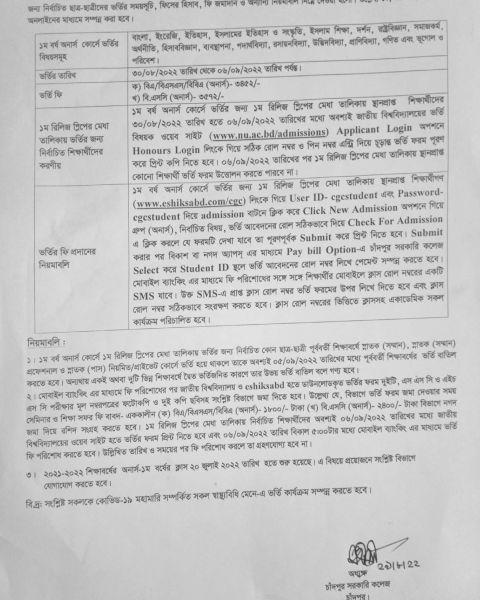 জন্য নির্বাচিত ছাত্র-ছাত্রীদের ভর্তির সময়সূচি, ফিসের হিসাব, ফি জমাদান ও অন্যান্য নিয়মাবলি নিম্নে দেওয়া হলো।
অনলাইনের মাধ্যমে সম্পন্ন করা হবে।
১ম বর্ষ অনার্স কোর্সে ভর্তির বিষয়সমূহ
বাংলা, ইংরেজি, ইতিহাস, ইসলামের ইতিহাস ও সংস্কৃতি, ইসলাম শিক্ষা, দর্শন, রাষ্ট্রবিজ্ঞান, সমাজকর্ম,
অর্থনীতি, হিসাববিজ্ঞান, ব্যবস্থাপনা, পদার্থবিদ্যা, রসায়নবিদ্যা, উদ্ভিদবিদ্যা, প্রাণিবিদ্যা, গণিত এবং ভূগোল ও
পরিবেশ।
ভর্তির তারিখ
৩০/০৮/২০২২ তারিখ থেকে ০৬/০৯/২০২২ তারিখ পর্যন্ত।
ভর্তি ফি
ক) বিএ/বিএসএস/বিবিএ (অনার্স)- ৩৪৫২/-
খ) বি.এসসি (অনার্স)- ৩৫৭২/-
১ম রিলিজ স্লিপের মেধা
তালিকায় ভর্তির জন্য
নির্বাচিত শিক্ষার্থীদের
করণীয়
১ম বর্ষ অনার্স কোর্সে ভর্তির জন্য ১ম রিলিজ স্লিপের মেধা তালিকায় স্থানপ্রাপ্ত শিক্ষার্থীদের
৩০/০৮/২০২২ তারিখ হতে ০৬/০৯/২০২২ তারিখের মধ্যে অবশ্যই জাতীয় বিশ্ববিদ্যালয়ের ভর্তি
বিষয়ক ওয়েব সাইট (www.nu.ac.bd/admissions) Applicant Login অপশনে
Honours Login লিংকে গিয়ে সঠিক রোল নম্বর ও পিন নম্বর এন্ট্রি দিয়ে চূড়ান্ত ভর্তি ফরম পূরণ
করে প্রিন্ট কপি নিতে হবে। ০৬/০৯/২০২২ তারিখের পর ১ম রিলিজ স্লিপের মেধা তালিকায় স্থানপ্রাপ্ত
কোনো শিক্ষার্থী ভর্তি ফরম উত্তোলন করতে পারবে না।
ভর্তির ফি প্রদানের
নিয়মাবলি
১ম বর্ষ অনার্স কোর্সে ভর্তির জন্য ১ম রিলিজ স্লিপের মেধা তালিকায় স্থানপ্রাপ্ত শিক্ষার্থীগণ
(www.eshiksabd.com/cgc) লিংকে গিয়ে User ID- cgcstudent এবং Password-
cgcstudent দিয়ে admission বাটনে ক্লিক করে Click New Admission অপশনে গিয়ে
গ্রুপ (অনার্স), নির্বাচিত বিষয়, ভর্তি আবেদনের রোল সঠিকভাবে দিয়ে Check For Admission
এ ক্লিক করলে যে ফরমটি দেখা যাবে তা পূরণপূর্বক Submit করে প্রিন্ট নিতে হবে। Submit
করার পর বিকাশ বা নগদ অ্যাপস্ এর মাধ্যমে Pay bill Option-এ চাঁদপুর সরকারি কলেজ
Select করে Student ID স্থলে ভর্তি আবেদনের রোল নম্বর লিখে পেমেন্ট সম্পন্ন করতে হবে।
মোবাইল ব্যাংকিং এর মাধ্যমে ফি পরিশোধের সঙ্গে সঙ্গে শিক্ষার্থীর মোবাইলে ক্লাস রোল নম্বরের একটি
SMS যাবে। উক্ত SMS-এ প্রাপ্ত ক্লাস রোল নম্বর ভর্তি ফরমের উপর লিখে দিতে হবে এবং ক্লাস
রোল নম্বর সঠিকভাবে সংরক্ষণ করতে হবে। ক্লাস রোল নম্বরের ভিত্তিতে ক্লাসসহ একাডেমিক সকল
কার্যক্রম পরিচালিত হবে।
নিয়মাবলি :
১। ১ম বর্ষ অনার্স কোর্সে ১ম রিলিজ স্লিপের মেধা তালিকায় ভর্তির জন্য নির্বাচিত কোন ছাত্র-ছাত্রী পূর্ববর্তী শিক্ষাবর্ষে স্নাতক (সম্মান), স্নাতক (সম্মান)
প্রফেশনাল ও স্নাতক (পাস) নিয়মিত/প্রাইভেট কোর্সে ভর্তি হয়ে থাকলে তাকে অবশ্যই ০৫/০৯/২০২২ তারিখের মধ্যে পূর্ববর্তী শিক্ষাবর্ষের ভর্তি বাতিল
করতে হবে। অন্যথায় একই অথবা দুটি ভিন্ন শিক্ষাবর্ষে দ্বৈত ভর্তিজনিত কারণে তার উভয় ভর্তি বাতিল বলে গণ্য হবে।
২। মোবাইল ব্যাংকিং এর মাধ্যমে ফি পরিশোধের পর জাতীয় বিশ্ববিদ্যালয় ও eshiksabd হতে ডাউনলোডকৃত ভর্তির ফরম দুইটি, এস এস সি ও এইচ
এস সি পরীক্ষার মূল নম্বরপত্রের ফটোকপি ও দুই কপি ছবিসহ সংশ্লিষ্ট বিভাগে জমা দিতে হবে। উল্লেখ্য যে, বিভাগে ভর্তি ফরম জমা দেওয়ার সময়
সেমিনার ও শিক্ষা সফর ফি বাবদ- এককালীন (ক) বিএ/বিএসএস/বিবিএ (অনার্স)- ১৮০০/- টাকা (খ) বি.এসসি (অনার্স)- ২৪০০/- টাকা বিভাগে নগদ
জমা দিয়ে রশিদ সংগ্রহ করতে হবে। ১ম রিলিজ স্লিপের মেধা তালিকায় নির্বাচিত শিক্ষার্থীদের অবশ্যই ০৬/০৯/২০২২ তারিখের মধ্যে জাতীয়
বিশ্ববিদ্যালয়ের ওয়েব সাইট হতে ভর্তির ফরম প্রিন্ট নিতে হবে এবং ০৬/০৯/২০২২ তারিখ বিকাল ৫০০টার মধ্যে মোবাইল ব্যাংকিং এর মাধ্যমে ভর্তি
ফি পরিশোধ করতে হবে। উল্লিখিত তারিখ ও সময়ের পর ফি পরিশোধ করলে তা গ্রহণযোগ্য হবে না।
৩। ২০২১-২০২২ শিক্ষাবর্ষের অনার্স-১ম বর্ষের ক্লাস ২০ জুলাই ২০২২ তারিখ হতে শুরু হয়েছে। এ বিষয়ে প্রয়োজনে সংশ্লিষ্ট বিভাগে
যোগাযোগ করতে হবে।
বি.দ্র: সংশ্লিষ্ট সকলকে কোভিড-১৯ মহামারি সম্পর্কিত সকল স্বাস্থ্যবিধি মেনে-এ ভর্তি কার্যক্রম সম্পন্ন করতে হবে।
২৯/৮/২২
অধ্যক্ষ
চাঁদপুর সরকারি কলেজ
চাঁদপুর।